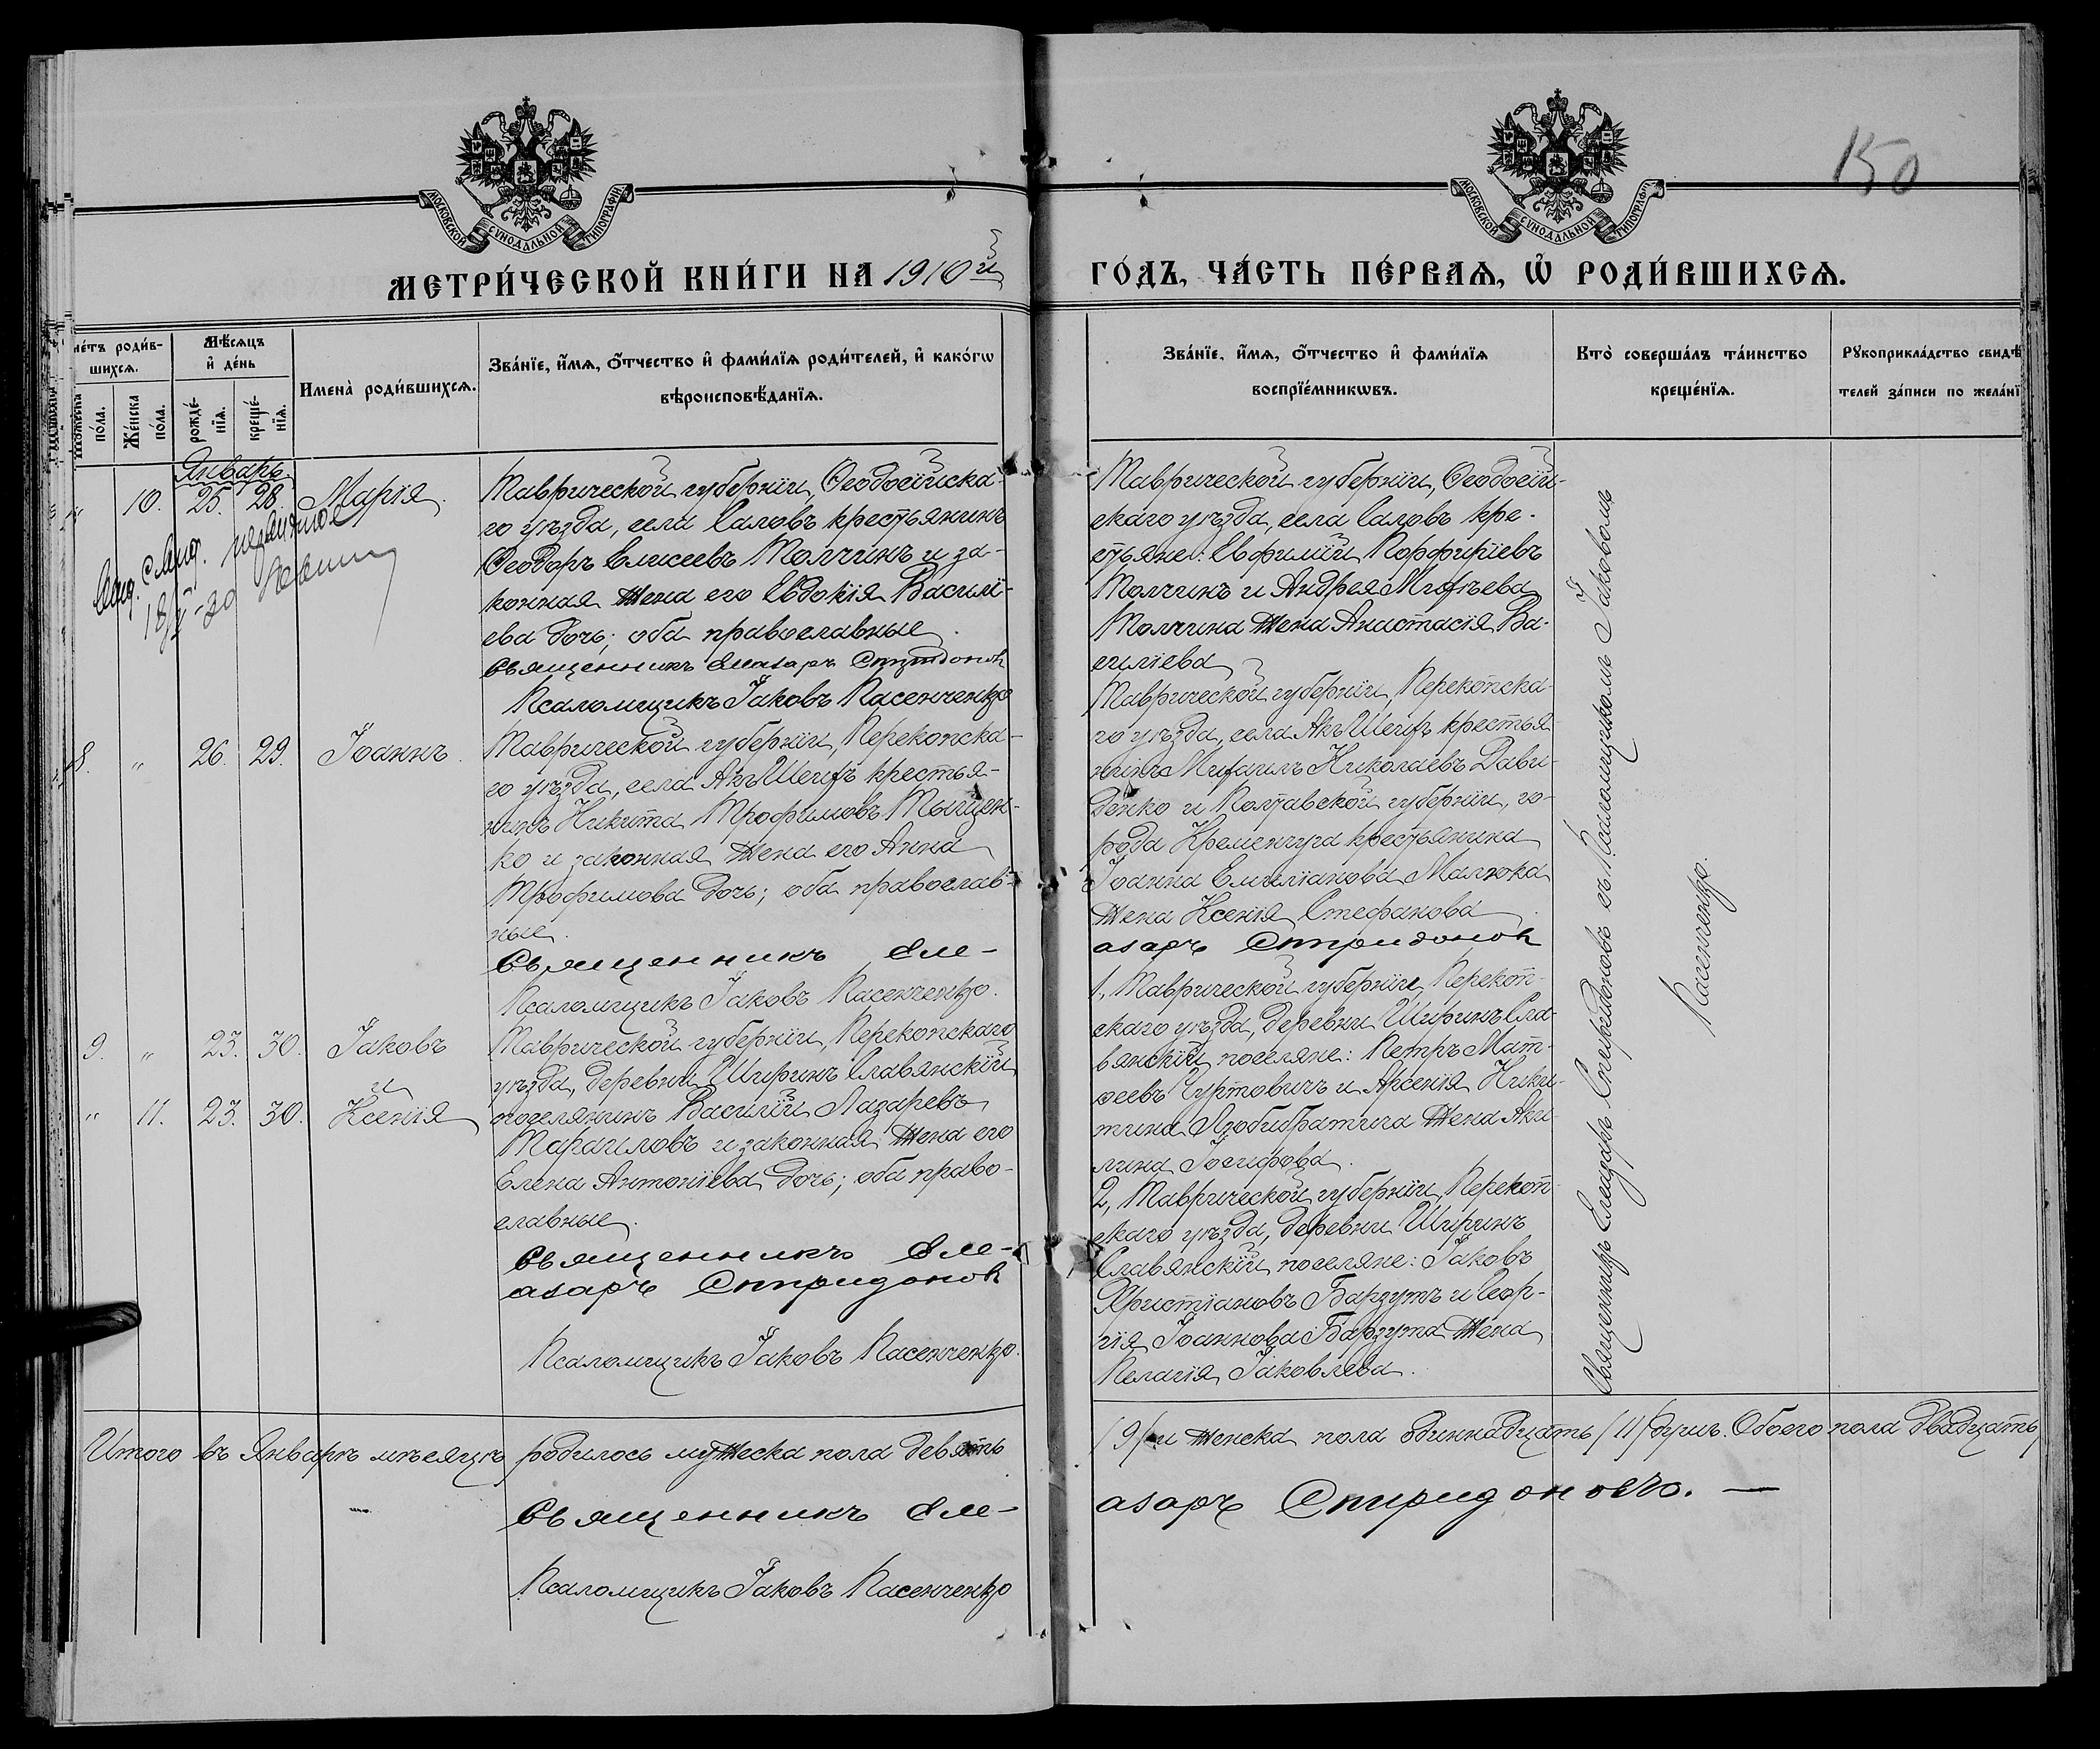 150
МОСКОВСКОЙ СУНОДАЛЬНОЙ ТИПОГРАФІИ
МОСКОВСКОЙ СУНОДАЛЬНОЙ ТИПОГРАФІИ
МЕТРИ́ЧЕСКОЙ КНИ́ГИ НА 1910й
ГО́ДЪ, ЧА́СТЬ ПЕ́РВАѦ, Ѡ҆ РОДИ́ВШИХСѦ.
четъ роди́в-
шихсѧ.
Мужеска
по́ла.
Же́нска
по́ла.
Мѣ́сѧцъ
и҆ де́нь
рожде́-
нїѧ.
креще́-
нїѧ.
Имена̀ роди́вшихсѧ.
Зва́нїе, и҆́мѧ, ѻ҆́тчество и҆ фами́лїѧ роди́телей, и҆ како́гѡ
вѣроисповѣ́данїѧ.
Зва́нїе, и҆́мѧ, ѻ҆́тчество и҆ фами́лїѧ
воспрїе́мникѡвъ.
Кто̀ соверша́лъ та́инство
креще́нїѧ.
Рꙋкоприкла́дство свидѣ́
телей за́писи по жела́нї
Январь
„ 10. 25. 28. Марія.
Таврической губерніи, Ѳеодосійска-
го уѣзда, села Саловъ крестьянинъ
Ѳеодоръ Елисеевъ Толчинъ и за-
конная жена его Евдокія Василі-
ева дочь; оба православные.
Священникъ Елеазаръ Спиридоновъ
Псаломщикъ Іаковъ Касенченко
Таврической губерніи, Ѳеодосій-
скаго уѣзда, села Саловъ кре-
стьяне: Евфимій Порфиріевъ
Толчинъ и Андрея Михѣева
Толчина жена Анастасія Ва-
силіева
8. „ 26. 29. Іоаннъ.
Таврической губерніи, Перекопска-
го уѣзда, села Акъ Шеихъ крестья-
нинъ Никита Трофимовъ Тыщен-
ко и законная жена его Анна
Трофимова дочь; оба православ-
ные.
Священникъ Еле-
Псаломщикъ Іаковъ Касенченко.
Таврической губерніи, Перекопска-
го уѣзда, села Акъ Шеихъ крестья-
нинъ Михаилъ Николаевъ Дави-
денко и Полтавской губерніи, го-
рода Кременчуга крестьянина
Іоанна Емиліанова Малюка
жена Ксенія Стефанова
азаръ Спиридоновъ
9. „ 23. 30. Іаковъ
и
„ 11. 23. 30. Ксенія
Таврической губерніи, Перекопскаго
уѣзда, деревни Ширинъ Славянскій
поселянинъ Василій Лазаревъ
и законная жена его
Елена Антоніева дочь; оба право-
славные.
Священникъ Еле-
азаръ Спиридоновъ
Псаломщикъ Іаковъ Касенченко.
1, Таврической губерніи, Перекоп-
скаго уѣзда, деревни Ширинъ Сла-
вянскій поселяне: Петръ Мат-
ѳеевъ Чуртовичъ и Арсенія Ники-
тина Любибратича жена Аки-
лина Іосифова.
2, Таврической губерніи, Перекоп-
скаго уѣзда, деревни Ширинъ
Славянскій поселяне: Іаковъ
Христіановъ Барзутъ и Геор-
гія Іоаннова Барзута жена
Пелагія Іаковлева.
Священникъ Елеазаръ Спиридоновъ съ Псаломщикомъ Іаковомъ
Касенченко.
Итого въ Январѣ мѣсяцѣ родилось мужеска пола девять
/9/ и женска пола одиннадцать /11/ душъ. Обоего пола двадцать
Священникъ Еле-
азаръ Спиридоновъ. —
Псаломщикъ Іаковъ Касенченко